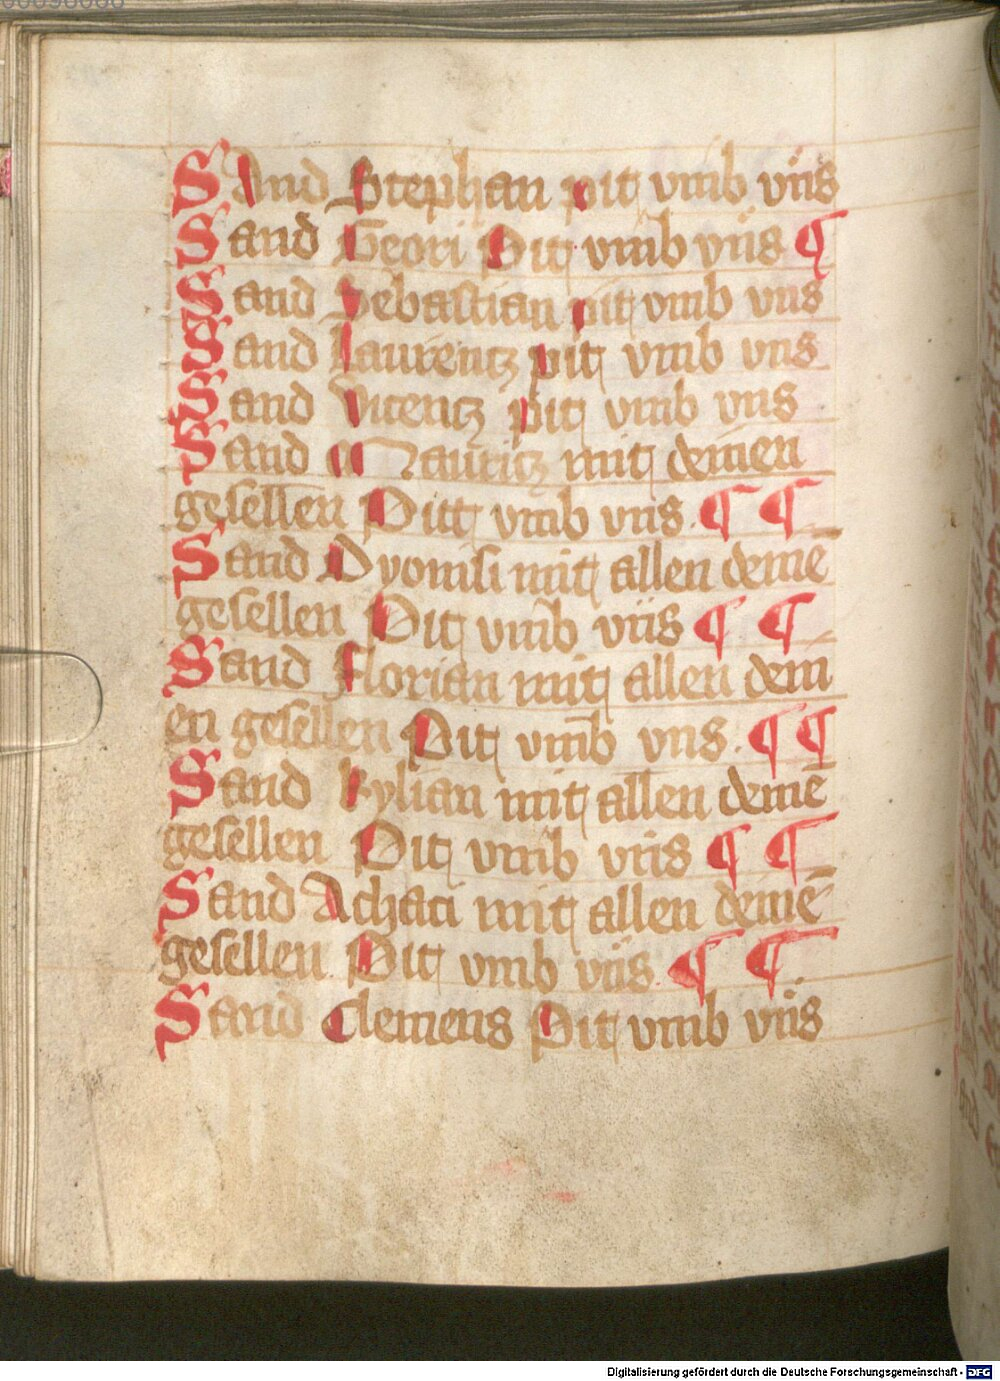 SAnd Stephan pit vmb vns
Sand Geori Pit vmb vns ¶
Sand Sebastian pit vmb vns
Sand Laurentz pit vmb vns
Sand Vicentz pit vmb vns
Sand Mauritz mit deinen
gesellen Pitt vmb vns. ¶ ¶
Sand Dyonisi mit allen deinē
gesellen Pit vmb vns ¶ ¶
Sand Florian mit allen dein
en gesellen Pit vmb vns. ¶ ¶
Sand kylian mit allen deinē
gesellen Pit vmb vns ¶ ¶
Sand Achaci mit allen deinē
gesellen Pit vmb vns. ¶ ¶
Sand Clemens Pit vmb vns
Digitalisierung gefördert durch die Deutsche Forschungsgemeinschaft - DFG